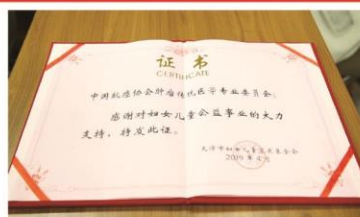 证 书
CERTIFICATE
中国抗癌协会肿瘤传统医学专业委员会:
感谢对妇女儿童公益事业的大力
支持，特发此证。
天津市妇女儿童发展基金会
2019年